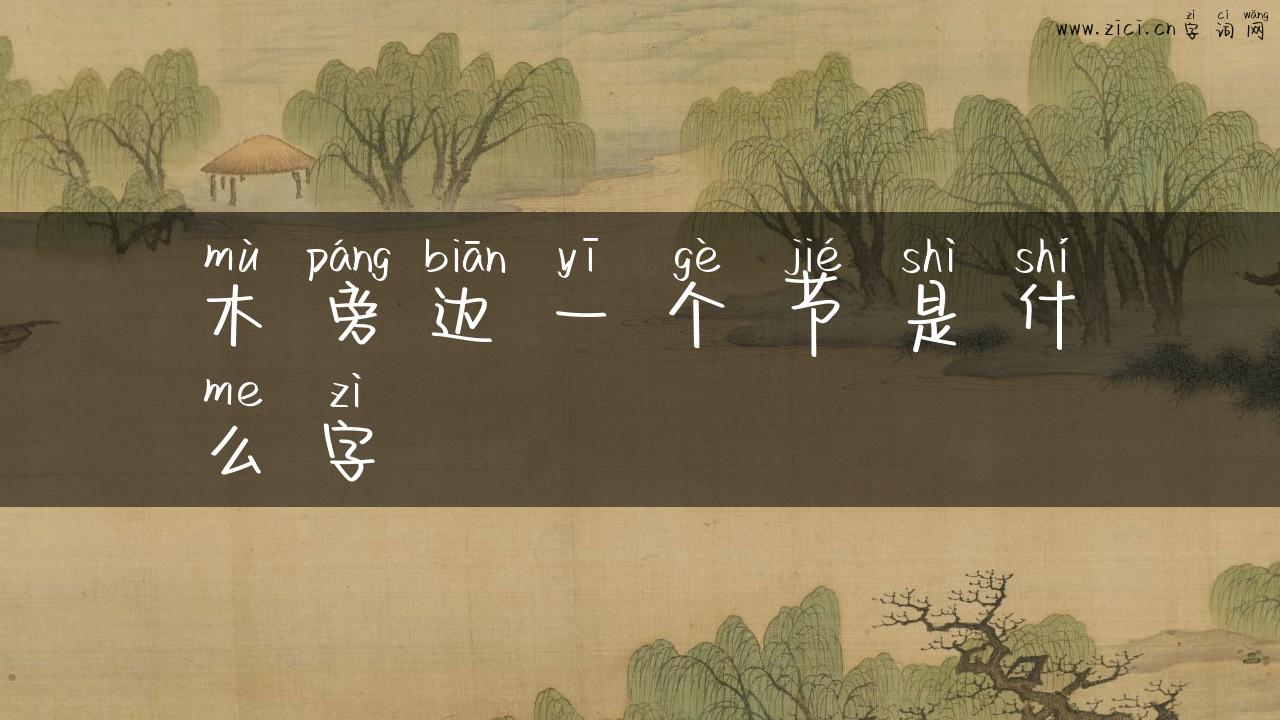 zì cí wǎng
www.zici.cn 字词网
mù páng biān yī gè jié shì shí
木旁边一个节是什
me zì
么字